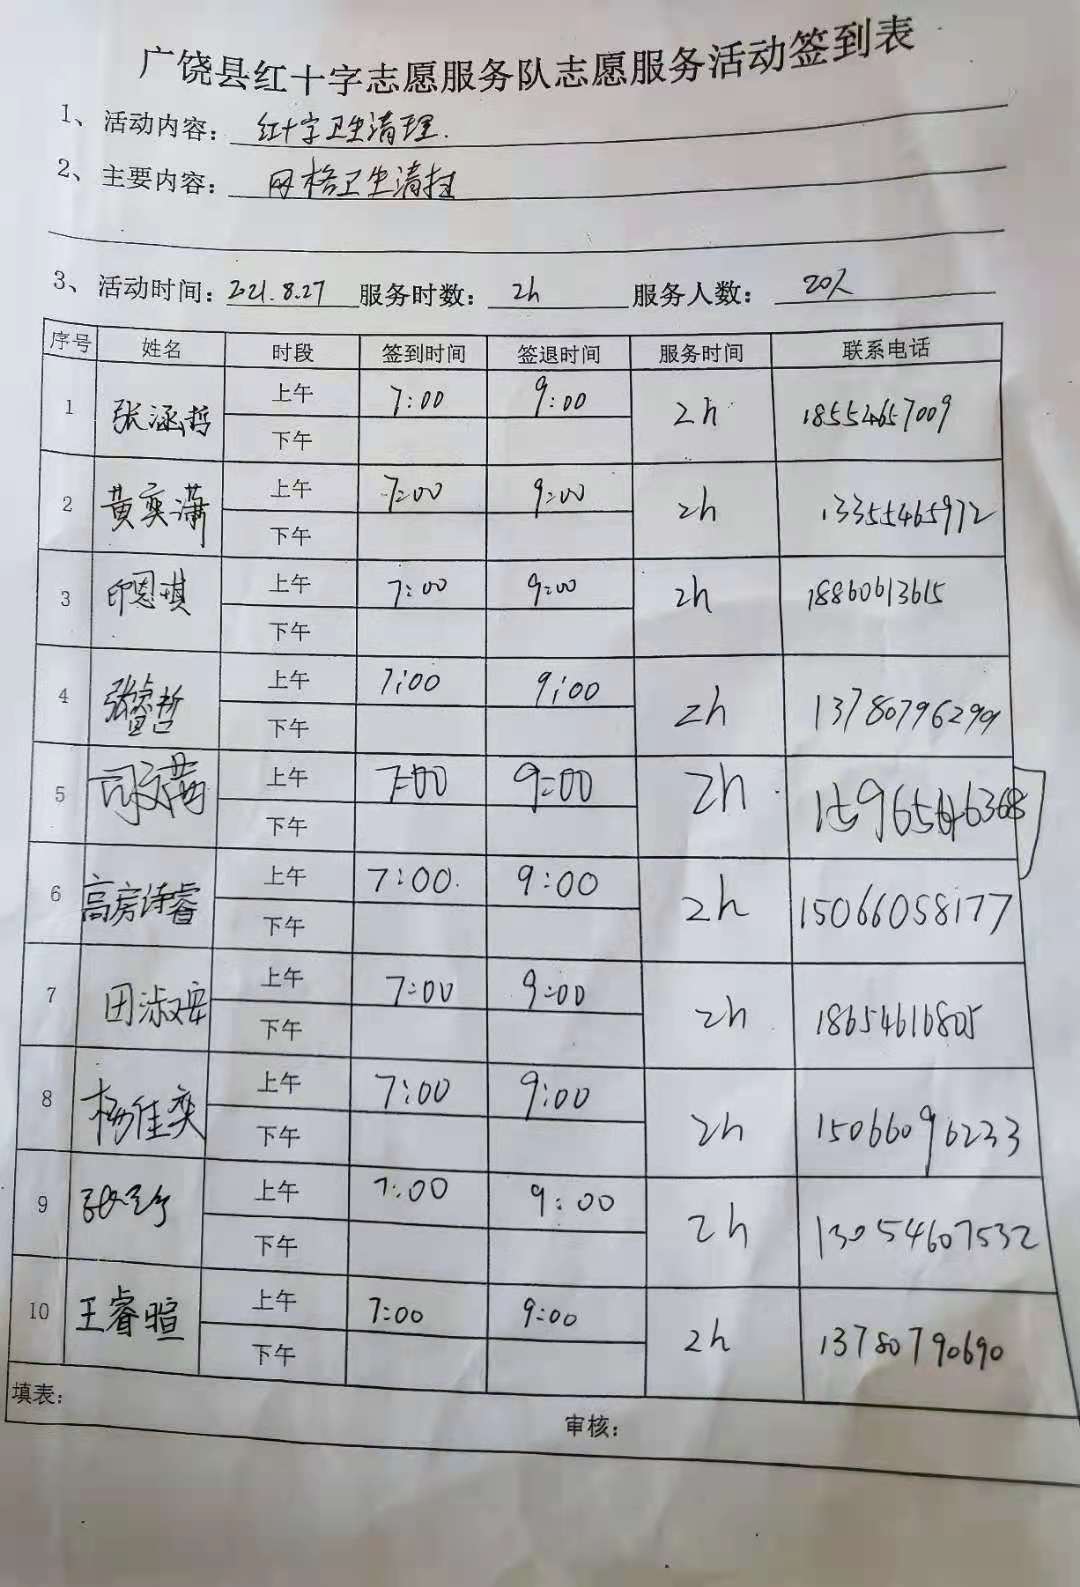 广饶县红十字志愿服务队志愿服务活动签到表
1、活动内容：红十字卫生清理.
2、主要内容：网格卫生清扫
3、活动时间：2021.8.27 服务时数：2h 服务人数：20人
序号 姓名 时段 签到时间 签退时间 服务时间 联系电话
1 张涵哲 上午 7:00 9:00 2h 18554657009
下午
2 黄奕潇 上午 7:00 9:00 2h 13355465972
下午
3 印恩琪 上午 7:00 9:00 2h 18860613615
下午
4 张睿哲 上午 7:00 9:00 2h 13780796299
下午
5 上午 7:00 9:00 2h
下午
6 高房诗睿 上午 7:00 9:00 2h 15066058177
下午
7 田淑安 上午 7:00 9:00 2h 18654616805
下午
8 杨佳奕 上午 7:00 9:00 2h 15066096233
下午
9 上午 7:00 9:00 2h 13054607532
下午
10 王睿暄 上午 7:00 9:00 2h 13780790690
下午
填表：
审核：